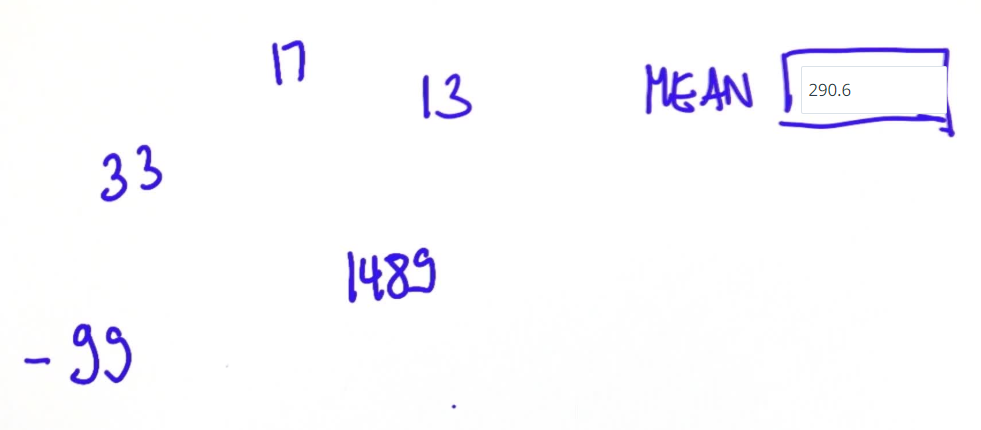 17
13
MEAN 290.6
33
1489
-99